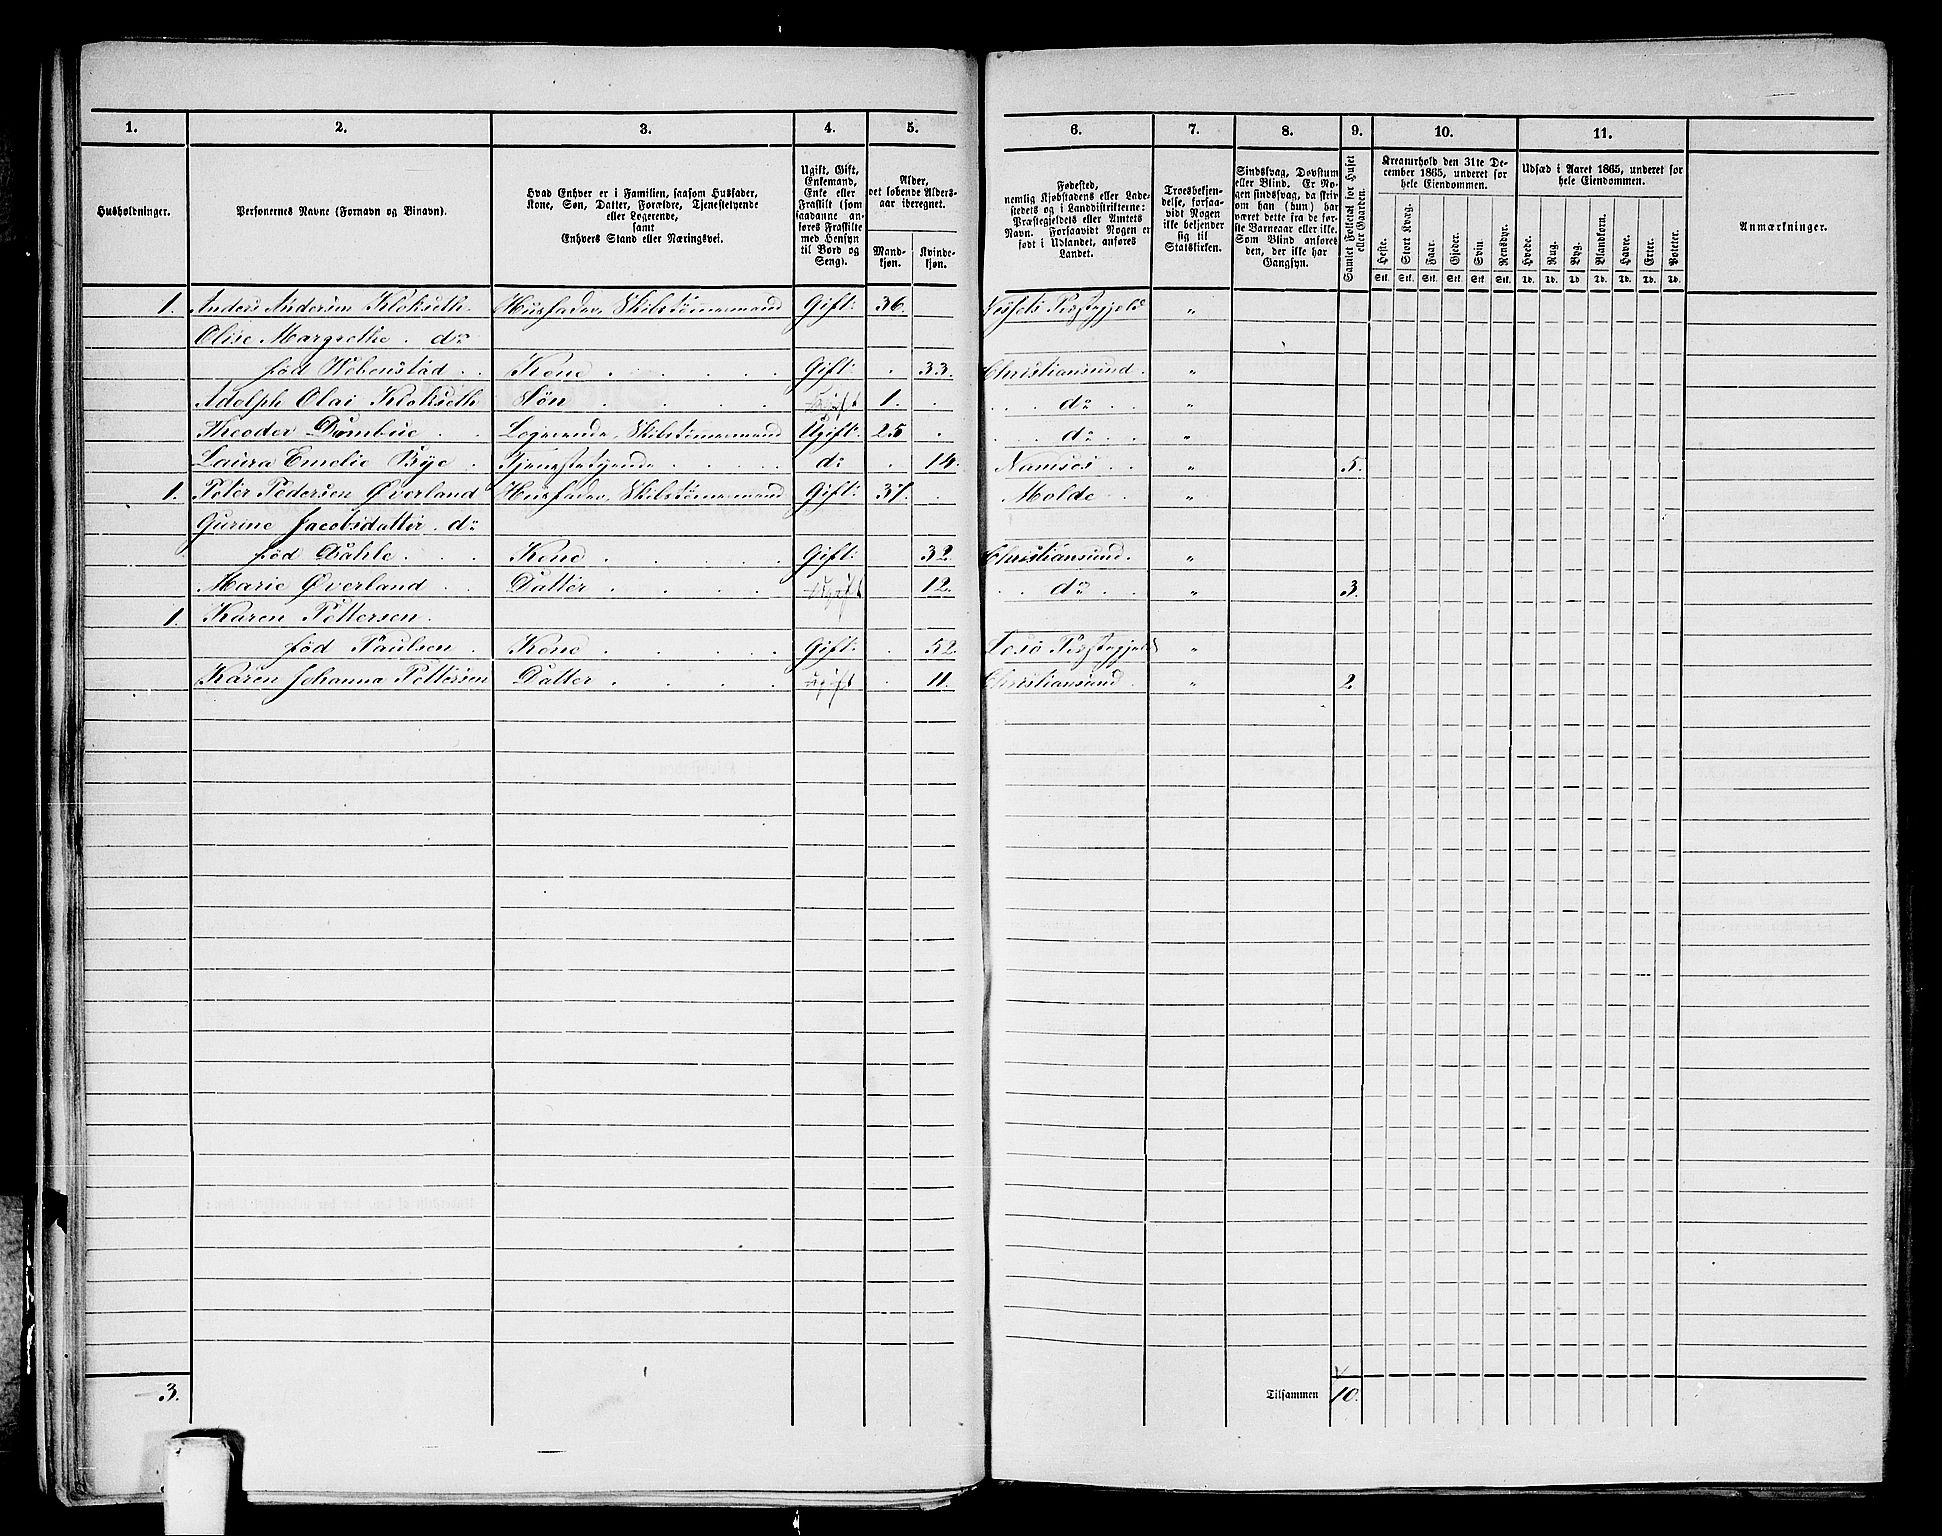 1. 2. 3. 4. 5. 6. 7. 8. 9. 10. 11.
Husholdninger.
Personernes Navne (Fornavn og Binavn).
Hvad Enhver er i Familien, saasom Husfader,
Kone, Søn, Datter, Forældre, Tjenestetyende
eller Logerende,
samt
Enhvers Stand eller Næringsvei.
Ugift, Gift,
Enkemand,
Enke eller
Fraskilt (som
saadanne an-
føres Fraskilte
med Hensyn
til Bord og
Seng).
Alder,
det løbende Alders-
aar iberegnet.
Mand-
kjøn.
Kvinde-
kjøn.
Fødested,
nemlig Kjøbstadens eller Lade-
stedets og i Landdistrikterne:
Præstegjeldets eller Amtets
Navn. Forsaavidt Nogen er
født i Udlandet, anføres
Landet.
Troesbekjen-
delse, forsaa-
vidt Nogen
ikke bekjender
sig til
Statskirken.
Sindssvag, Døvstum
eller Blind. Er No-
gen sindssvag, da skriv
om han (hun) har
været dette fra de før-
ste Barneaar eller ikke.
Som Blind anføres
den, der ikke har
Gangsyn.
Samlet Folketal for Huset
eller Gaarden.
Kreaturhold den 31te De-
cember 1865, underet for
hele Eiendommen.
Heste.
Stort Kvæg.
Faar.
Gjeder.
Svin.
Rensdyr.
Stk. Stk. Stk. Stk. Stk. Stk.
Udsæd i Aaret 1865, underet for
hele Eiendommen.
Hvede.
Rug.
Byg.
Blandkorn.
Havre.
Erter.
Poteter.
Td. Td. Td. Td. Td. Td. Td.
Anmærkninger.
1. Anders Andersen Klokseth Husfader, Skibstømmermand Gift: 36. Præstegjeld "
Olise Margrethe . do
født Webenstad . . Kone . . . . . Gift: . 33. Christiansund. "
Adolph Olai Klokseth Søn . . . . . Ugift 1. . . . do . . "
Theodor Dambue . . Logerende, Skibstømmermand Ugift: 25 . . . do . . "
Laura Emelie Bye . Tjenestetyende . . . . do . 14. Namsos . . " 5.
1. Peter Pedersen Øverland Husfader, Skibstømmermand Gift: 37. . Molde . . "
Gurine Jacobsdatter . do
født Dahle . . . Kone . . . . . Gift: . 32. Christiansund. "
Marie Øverland . . Datter . . . . . Ugift . 12. . . do . . " 3.
1. Karen Pettersen .
født Paulsen . Kone . . . . . Gift: . 52. Præstegjeld "
Karen Johanna Pettersen Datter . . . . Ugift . 11. Christiansund . " 2.
3.
Tilsammen 10.